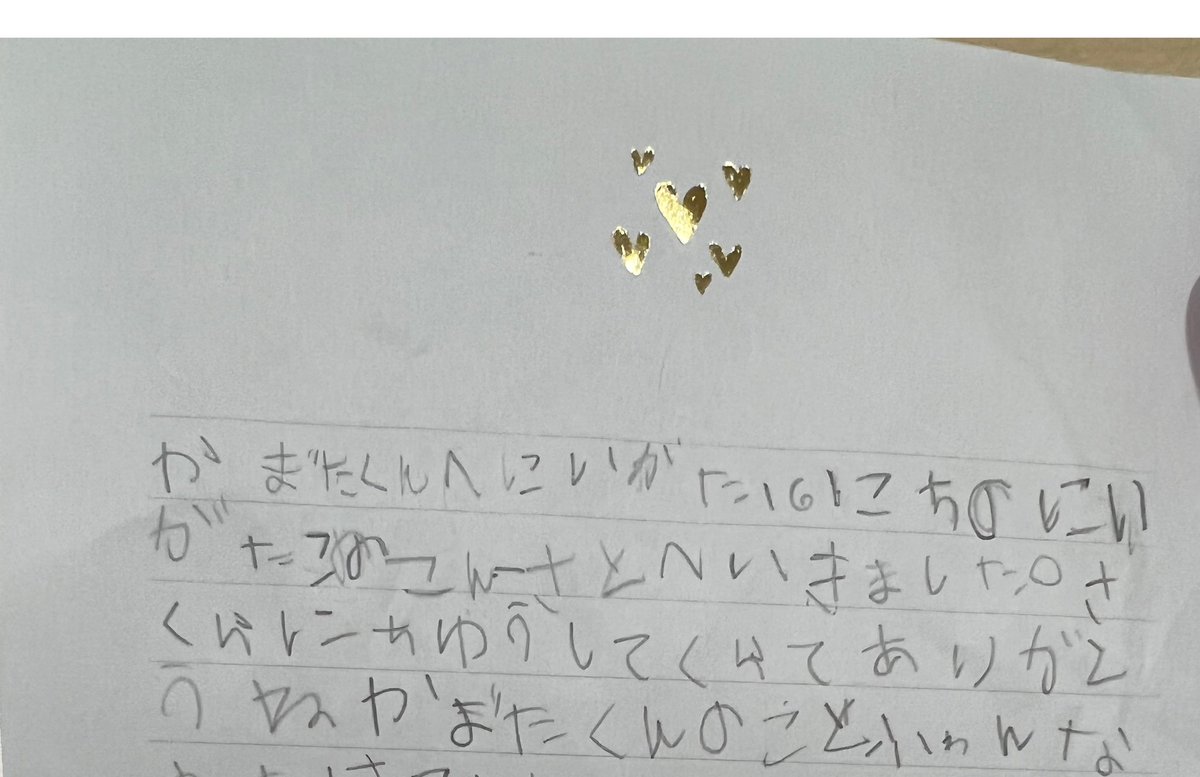 かまだくんへにいがた16にちのにい
がたのこんーさとへいきました。さ
くれにーちゆうしてくれてありがと
うねかまだくんのこと